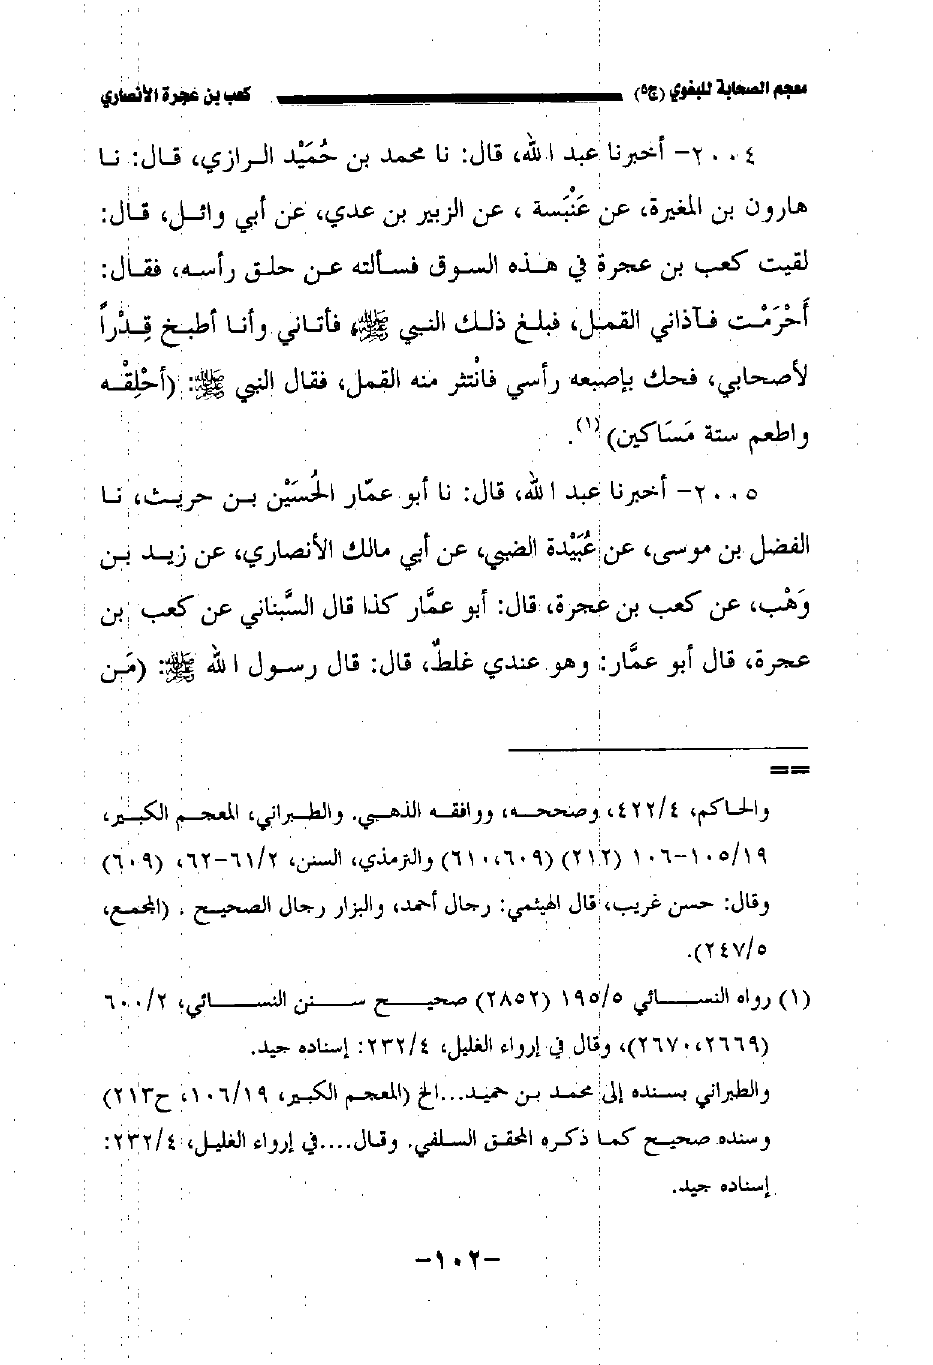 معجم الصحابة للبغوي (ج٥) كعب بن عجرة الأنصاري
٢٠٠٤- أخبرنا عبد الله، قال: نا محمد بن حُمَيْد الرازي، قال: نا
هارون بن المغيرة، عن عَنْبَسة ، عن الزبير بن عدي، عن أبي وائل، قال:
لقيت كعب بن عجرة في هذه السوق فسألته عن حلق رأسه، فقال:
أَحْرَمْت فآذاني القمل، فبلغ ذلك النبي ﷺ، فأتاني وأنا أطبخ قِدْراً
لأصحابي، فحك بإصبعه رأسي فانْتثر منه القمل، فقال النبي ﷺ: (أحْلِقْه
واطعم ستة مَسَاكين)(١).
٢٠٠٥- أخبرنا عبد الله، قال: نا أبو عمّار الحُسَيْن بن حريث، نا
الفضل بن موسى، عن عُبَيْدة الضبي، عن أبي مالك الأنصاري، عن زيد بن
وَهْب، عن كعب بن عجرة، قال: أبو عمَّار كذا قال السَّبناني عن كعب بن
عجرة، قال أبو عمَّار: وهو عندي غلطٌ، قال: قال رسول الله ﷺ: (مَن
==
والحاكم، ٤٢٢/٤، وصححه، ووافقه الذهبي. والطبراني، المعجم الكبير،
١٠٥/١٩-١٠٦ (٢١٢) (٦١٠،٦٠٩) والترمذي، السنن، ٦١/٢-٦٢، (٦٠٩)
وقال: حسن غريب، قال الهيثمي: رجال أحمد، والبزار رجال الصحيح . (المجمع،
٢٤٧/٥).
(١) رواه النسائي ١٩٥/٥ (٢٨٥٢) صحيح سنن النسائي، ٦٠٠/٢
(٢٦٧٠،٢٦٦٩)، وقال في إرواء الغليل، ٢٣٢/٤: إسناده جيد.
والطبراني بسنده إلى محمد بن حميد...الخ (المعجم الكبير، ١٠٦/١٩، ح٢١٣)
وسنده صحيح كما ذكره المحقق السلفي. وقال....في إرواء الغليل، ٢٣٢/٤:
إسناده جيد.
-١٠٢-